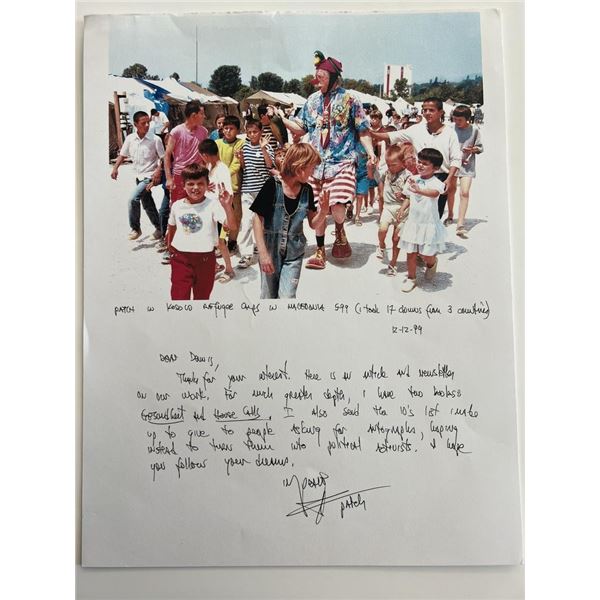 PATCH IN KOSOVO REFUGEE CAMPS IN MACEDONIA 5-99 (I took 17 clowns from 3 countries)
12-12-99
Dear Dennis,
Thanks for your interest. Here is an article and newsletter
on our work. For much greater depth, I have two books:
Gesundheit and House Calls. I also send the 10's list I make
up to give to people asking for autographs, hoping
instead to turn them into political activists. I hope
you follow your dreams.
in peace
patch